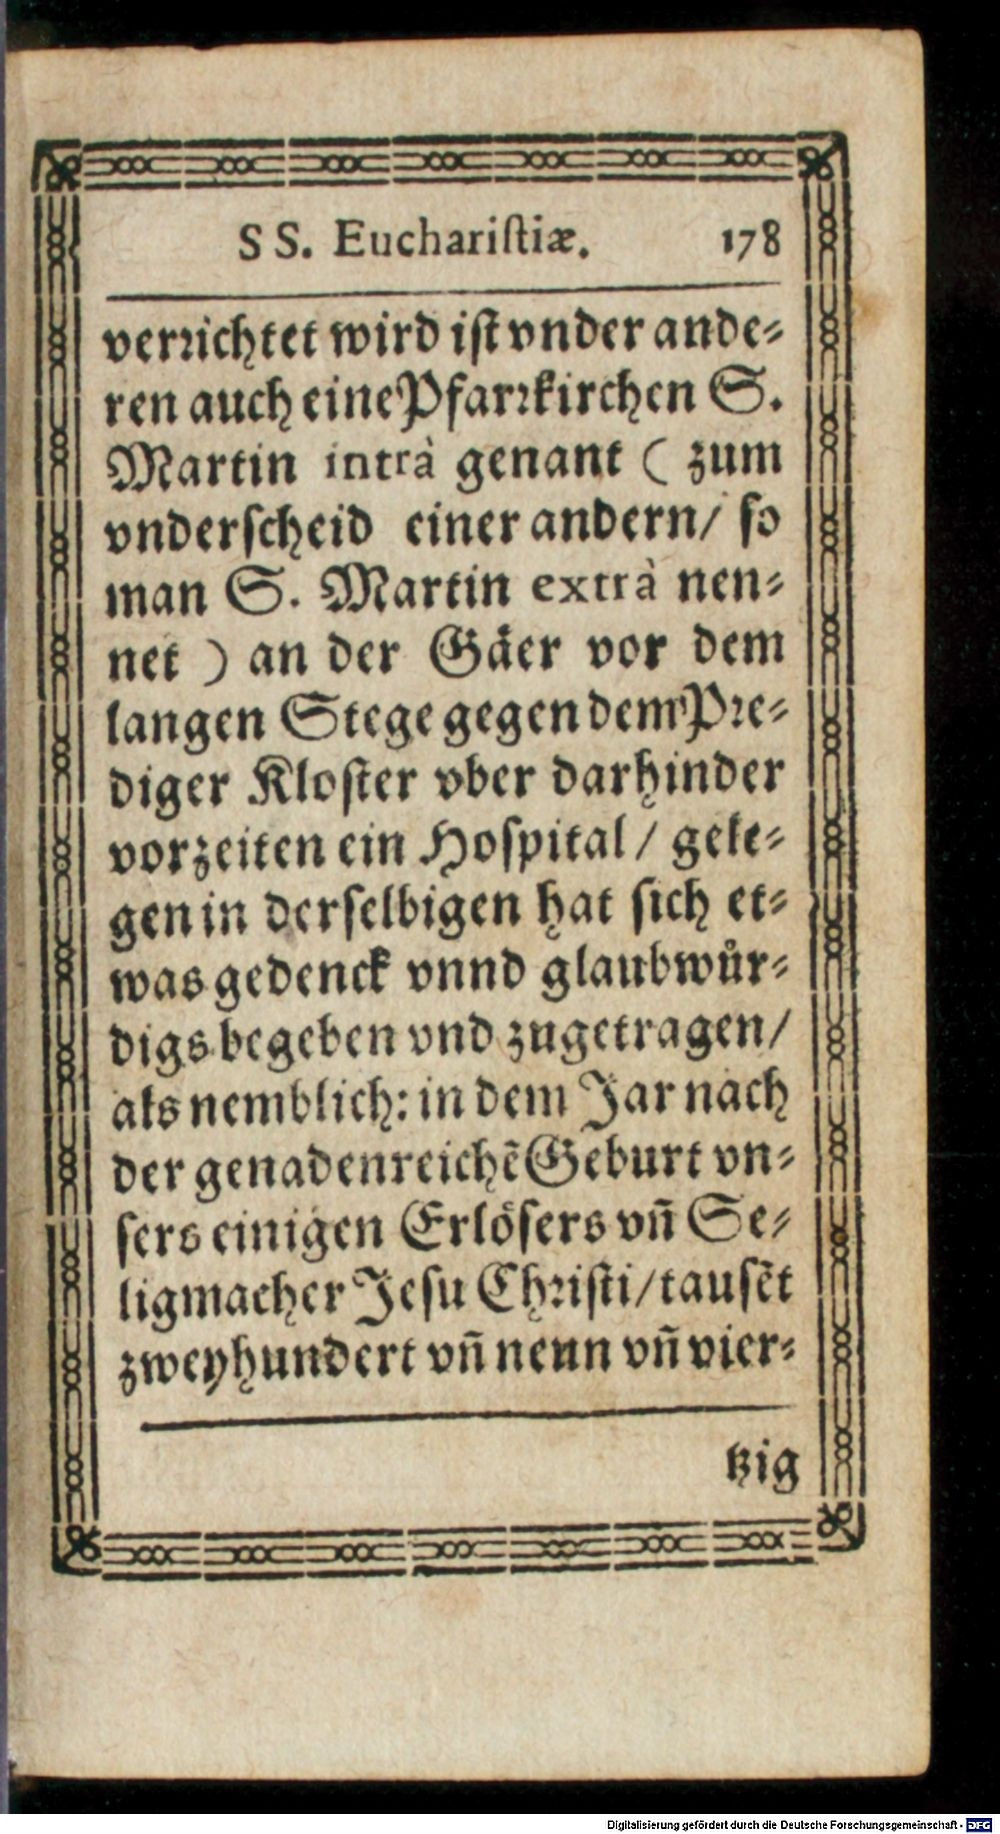 SS. Euchariſtiæ. 178
verrichtet wird iſt vnder ande-
ren auch eine Pfarrkirchen S.
Martin intrà genant ( zum
vnderſcheid einer andern/ ſo
man S. Martin extrà nen-
net ) an der Gäer vor dem
langen Stege gegen dem Pre-
diger Kloſter vber darhinder
vorzeiten ein Hoſpital / gele-
gen in derſelbigen hat ſich et-
was gedenck vnnd glaubwuͤr-
digs begeben vnd zugetragen/
als nemblich: in dem Jar nach
der genadenreichẽ Geburt vn-
ſers einigen Erlöſers vñ Se-
ligmacher Jeſu Chriſti/ tauſẽt
zweyhundert vñ nenn vñ vier-
tzig
Digitalisierung gefördert durch die Deutsche Forschungsgemeinschaft - DFG